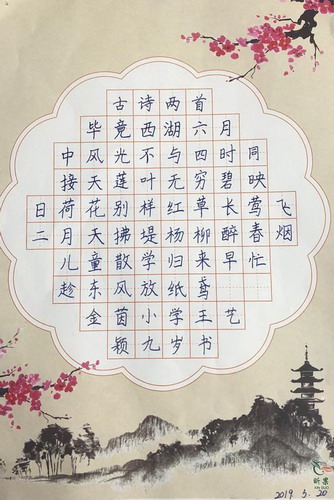 古诗两首
毕竟西湖六月
中风光不与四时同
接天莲叶无穷碧映
日荷花别样红草长莺飞
二月天拂堤杨柳醉春烟
儿童散学归来早忙
趁东风放纸鸢
金茵小学王艺
颖九岁书
昕果
2019 5.